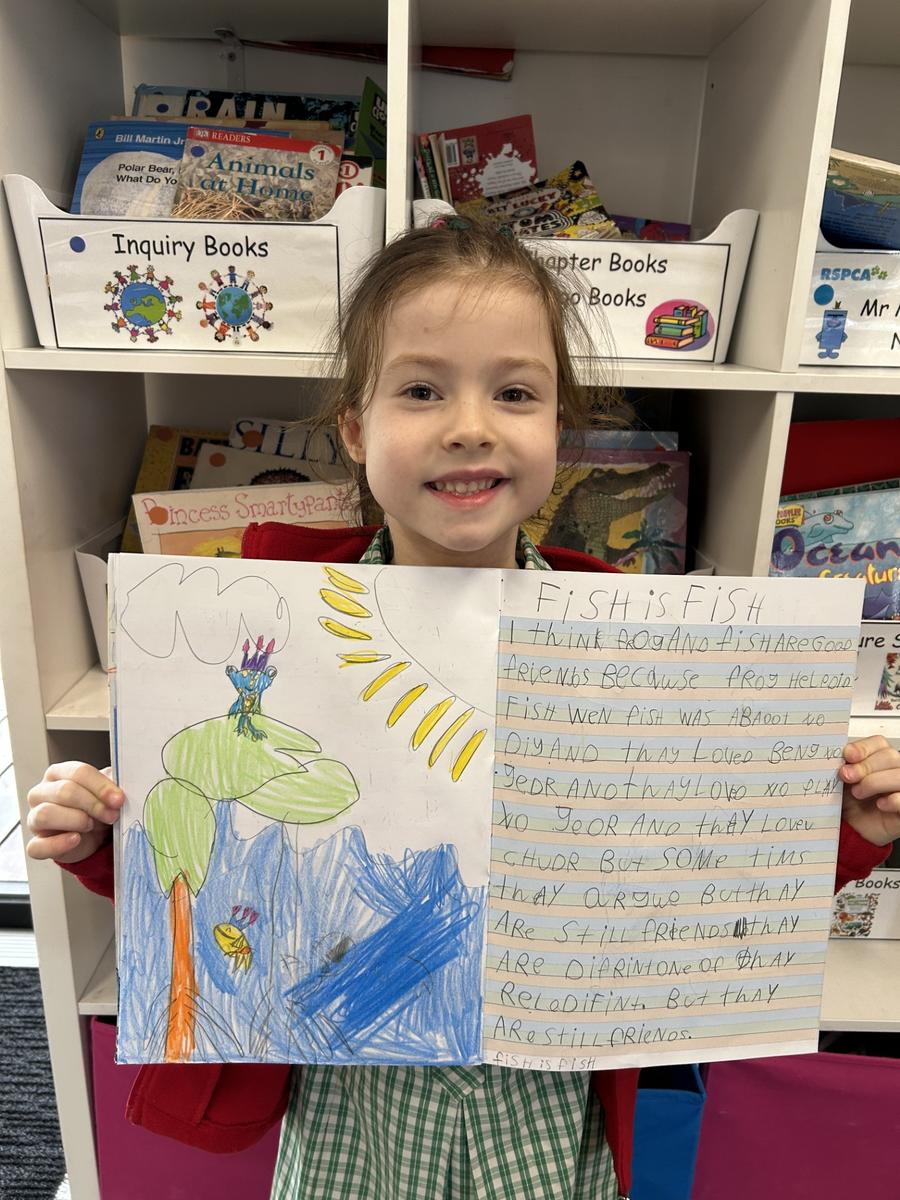 BRAIN
Bill Martin Jr
Polar Bear,
What Do Yo
DK READERS
1
Animals
at Home
Inquiry Books
TOM
GATES
Chapter Books
oo Books
RSPCA
Mr
SILLY
Princess Smartypants
Ocean
Creatur
ure S
Books
FiSH is FiSH
I thiNK fROg AND fiSH ARe GOOD
frieNDS BECAuse fRog HeLPDiN
FiSH WeN fiSH WAS ABAOOt xO
DiY AND thAY LOVeD BeNg xO
geDR ANO thAY LOVD xO PLAY
xO geOR AND thAY LOVeu
CHUDR But SOMe tiMS
thAY ARgue But thAY
ARe StiLL fRIeNDS thAY
ARe DifRiNt ONe Of thAY
ReLeDifiNt But thAY
ARe StiLL fRieNDS.
fiSH is fiSH